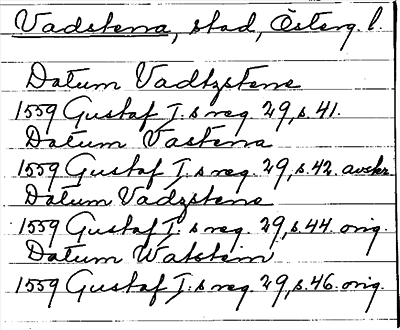 Vadstena, stad, Österg. l.
Datum Vadtzstene
1559 Gustaf I:s reg. 29, s. 41.
Datum Vastena
1559 Gustaf I:s reg. 29, s. 42. avskr.
Datum Vadzstene
1559 Gustaf I:s reg. 29, s. 44. orig.
Datum Watstein
1559 Gustaf I:s reg. 29, s. 46. orig.